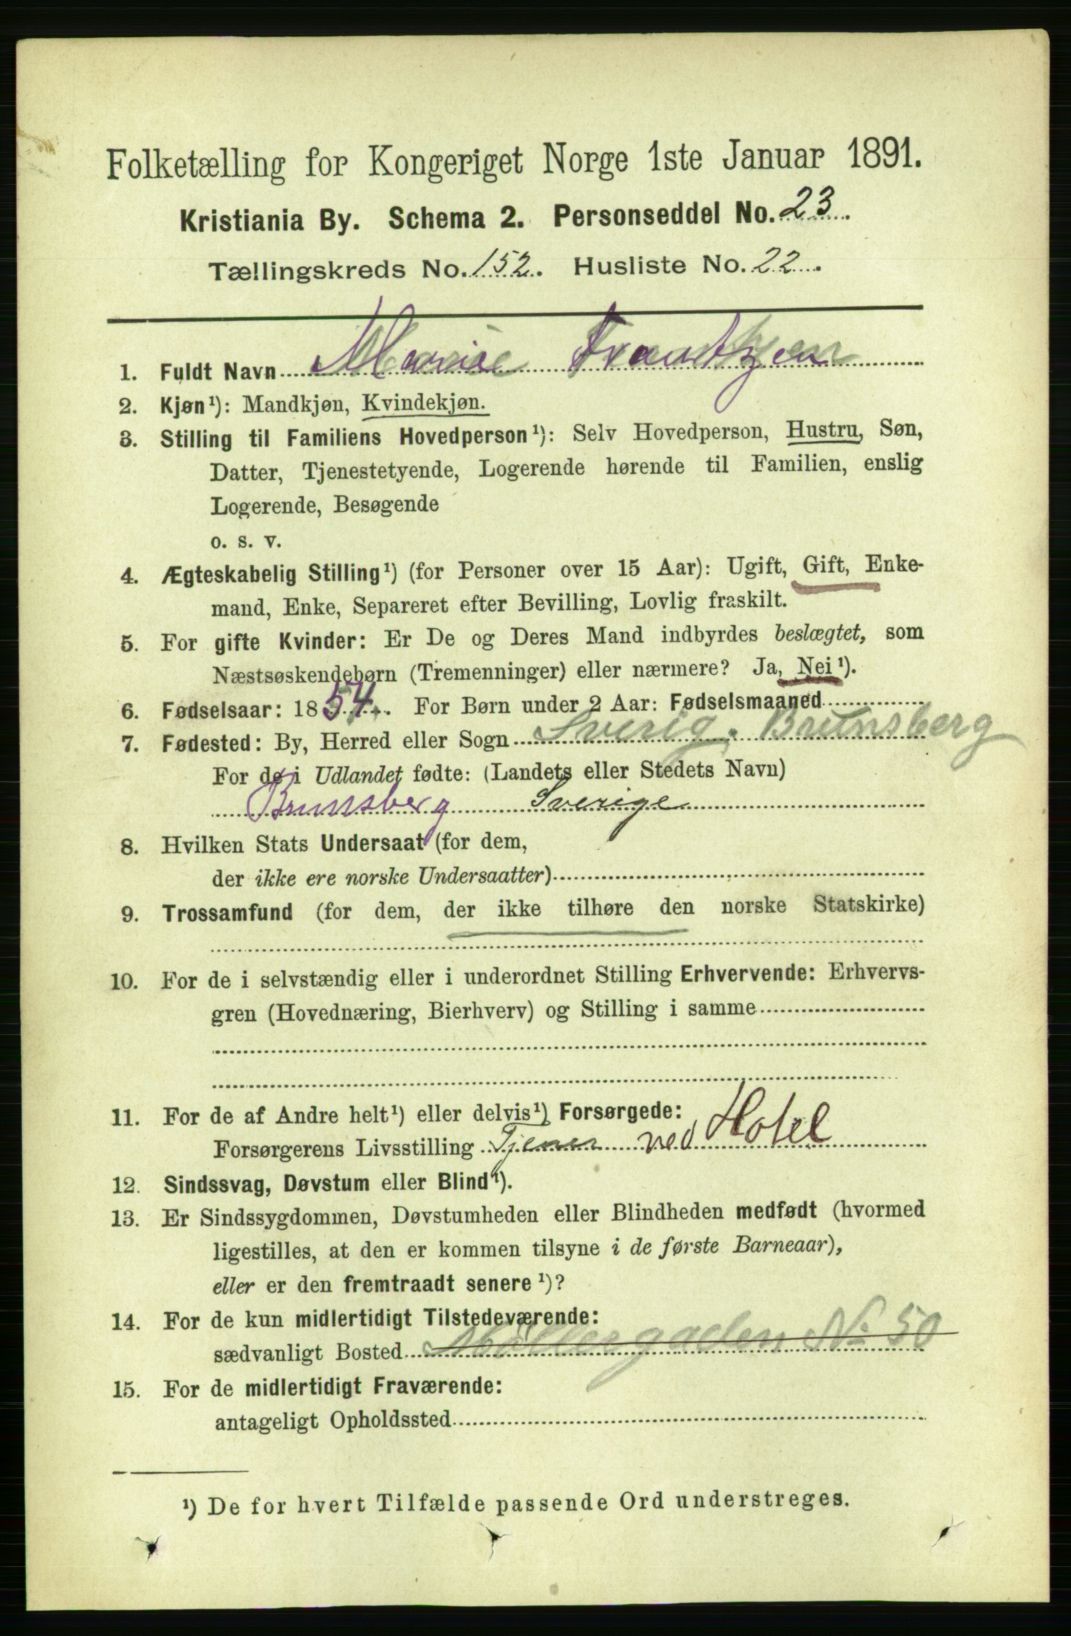 Folketælling for Kongeriget Norge 1ste Januar 1891.
Kristiania By. Schema 2. Personseddel No. 23.
Tællingskreds No. 152. Husliste No. 22.
1. Fuldt Navn Marie Frantzen
2. Kjøn¹): Mandkjøn, Kvindekjøn.
3. Stilling til Familiens Hovedperson¹): Selv Hovedperson, Hustru, Søn,
Datter, Tjenestetyende, Logerende hørende til Familien, enslig
Logerende, Besøgende
o. s. v.
4. Ægteskabelig Stilling¹) (for Personer over 15 Aar): Ugift, Gift, Enke-
mand, Enke, Separeret efter Bevilling, Lovlig fraskilt.
5. For gifte Kvinder: Er De og Deres Mand indbyrdes beslægtet, som
Næstsøskendebørn (Tremenninger) eller nærmere? Ja, Nei¹).
6. Fødselsaar: 1854. For Børn under 2 Aar: Fødselsmaaned
7. Fødested: By, Herred eller Sogn Sverig. Brunsberg
For de i Udlandet fødte: (Landets eller Stedets Navn)
Brunsberg Sverige
8. Hvilken Stats Undersaat (for dem,
der ikke ere norske Undersaatter)
9. Trossamfund (for dem, der ikke tilhøre den norske Statskirke)
10. For de i selvstændig eller i underordnet Stilling Erhvervende: Erhvervs-
gren (Hovednæring, Bierhverv) og Stilling i samme
11. For de af Andre helt¹) eller delvis¹) Forsørgede:
Forsørgerens Livsstilling Tjener ved Hotel
12. Sindssvag, Døvstum eller Blind¹).
13. Er Sindssygdommen, Døvstumheden eller Blindheden medfødt (hvormed
ligestilles, at den er kommen tilsyne i de første Barneaar),
eller er den fremtraadt senere¹)?
14. For de kun midlertidigt Tilstedeværende:
sædvanligt Bosted Møllergaden No 50
15. For de midlertidigt Fraværende:
antageligt Opholdssted
¹) De for hvert Tilfælde passende Ord understreges.